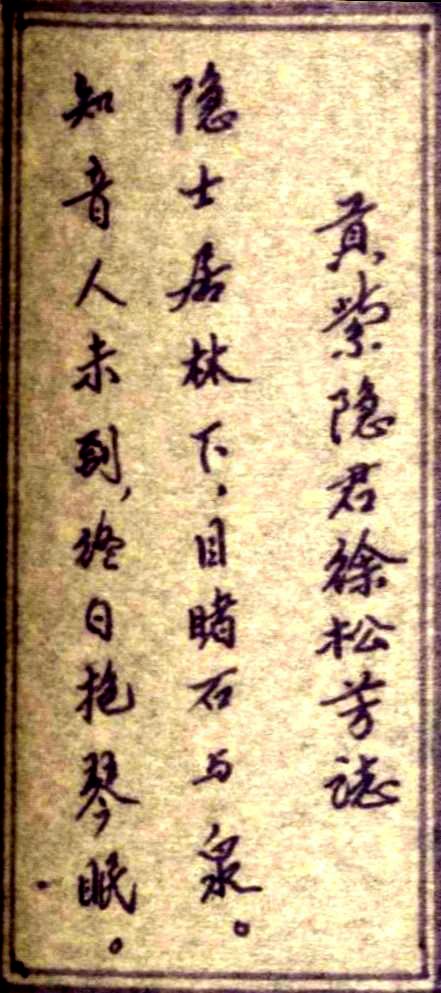 黄紫隐君徐松芳誌
隐士居林下，目睹石与泉。
知音人未到，终日抱琴眠。